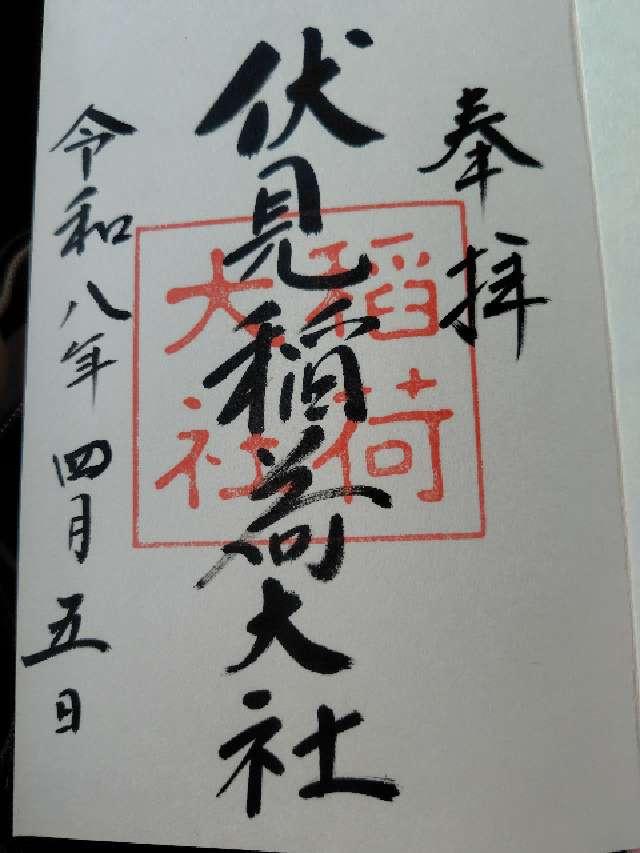 奉拝
伏見稲荷大社
稲荷
大社
令和八年四月五日